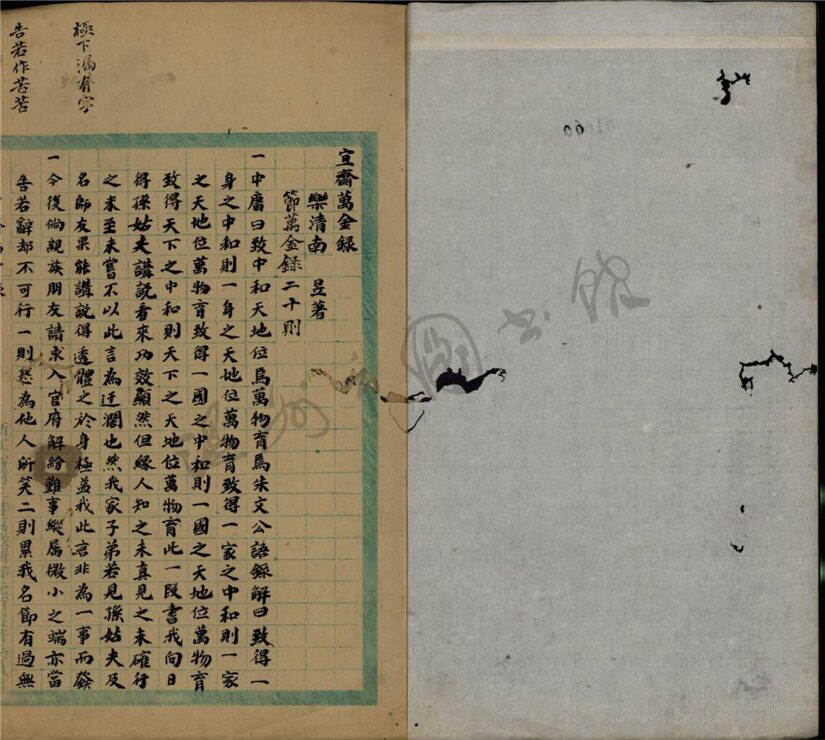 宜齋萬金錄
樂清南 昱著
節萬金錄二十則
一中庸曰致中和天地位焉萬物育焉朱文公語錄解曰致得一
身之中和則一身之天地位萬物育致得一家之中和則一家
之天地位萬物育致得一國之中和則一國之天地位萬物育
致得天下之中和則天下之天地位萬物育此一段書我向日
得孫姑夫講說看來功效顯然但緣人知之未真見之未確行
之未至未嘗不以此言為迂濶也然我家子弟若見孫姑夫及
名師友果能講說得透體之於身極益我此言非為一事而發
一今後倘親族朋友請求入官府解紛難事縱属微小之端亦當
告若辭却不可行一則惹為他人所笑二則累我名節有過無
極下漏有字
告若作苦苦
圖書館